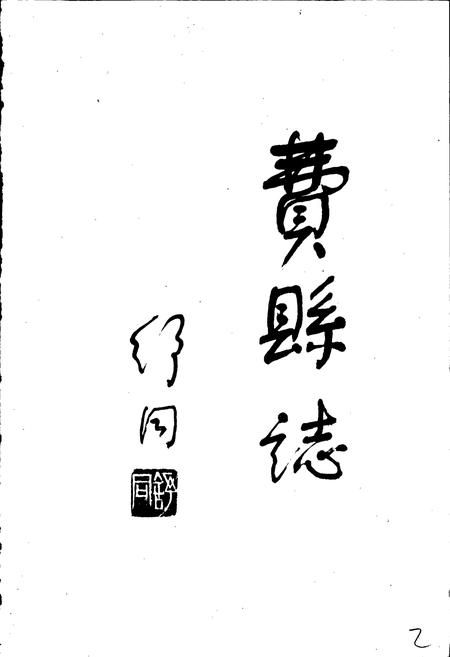 費縣誌
舒同
舒同